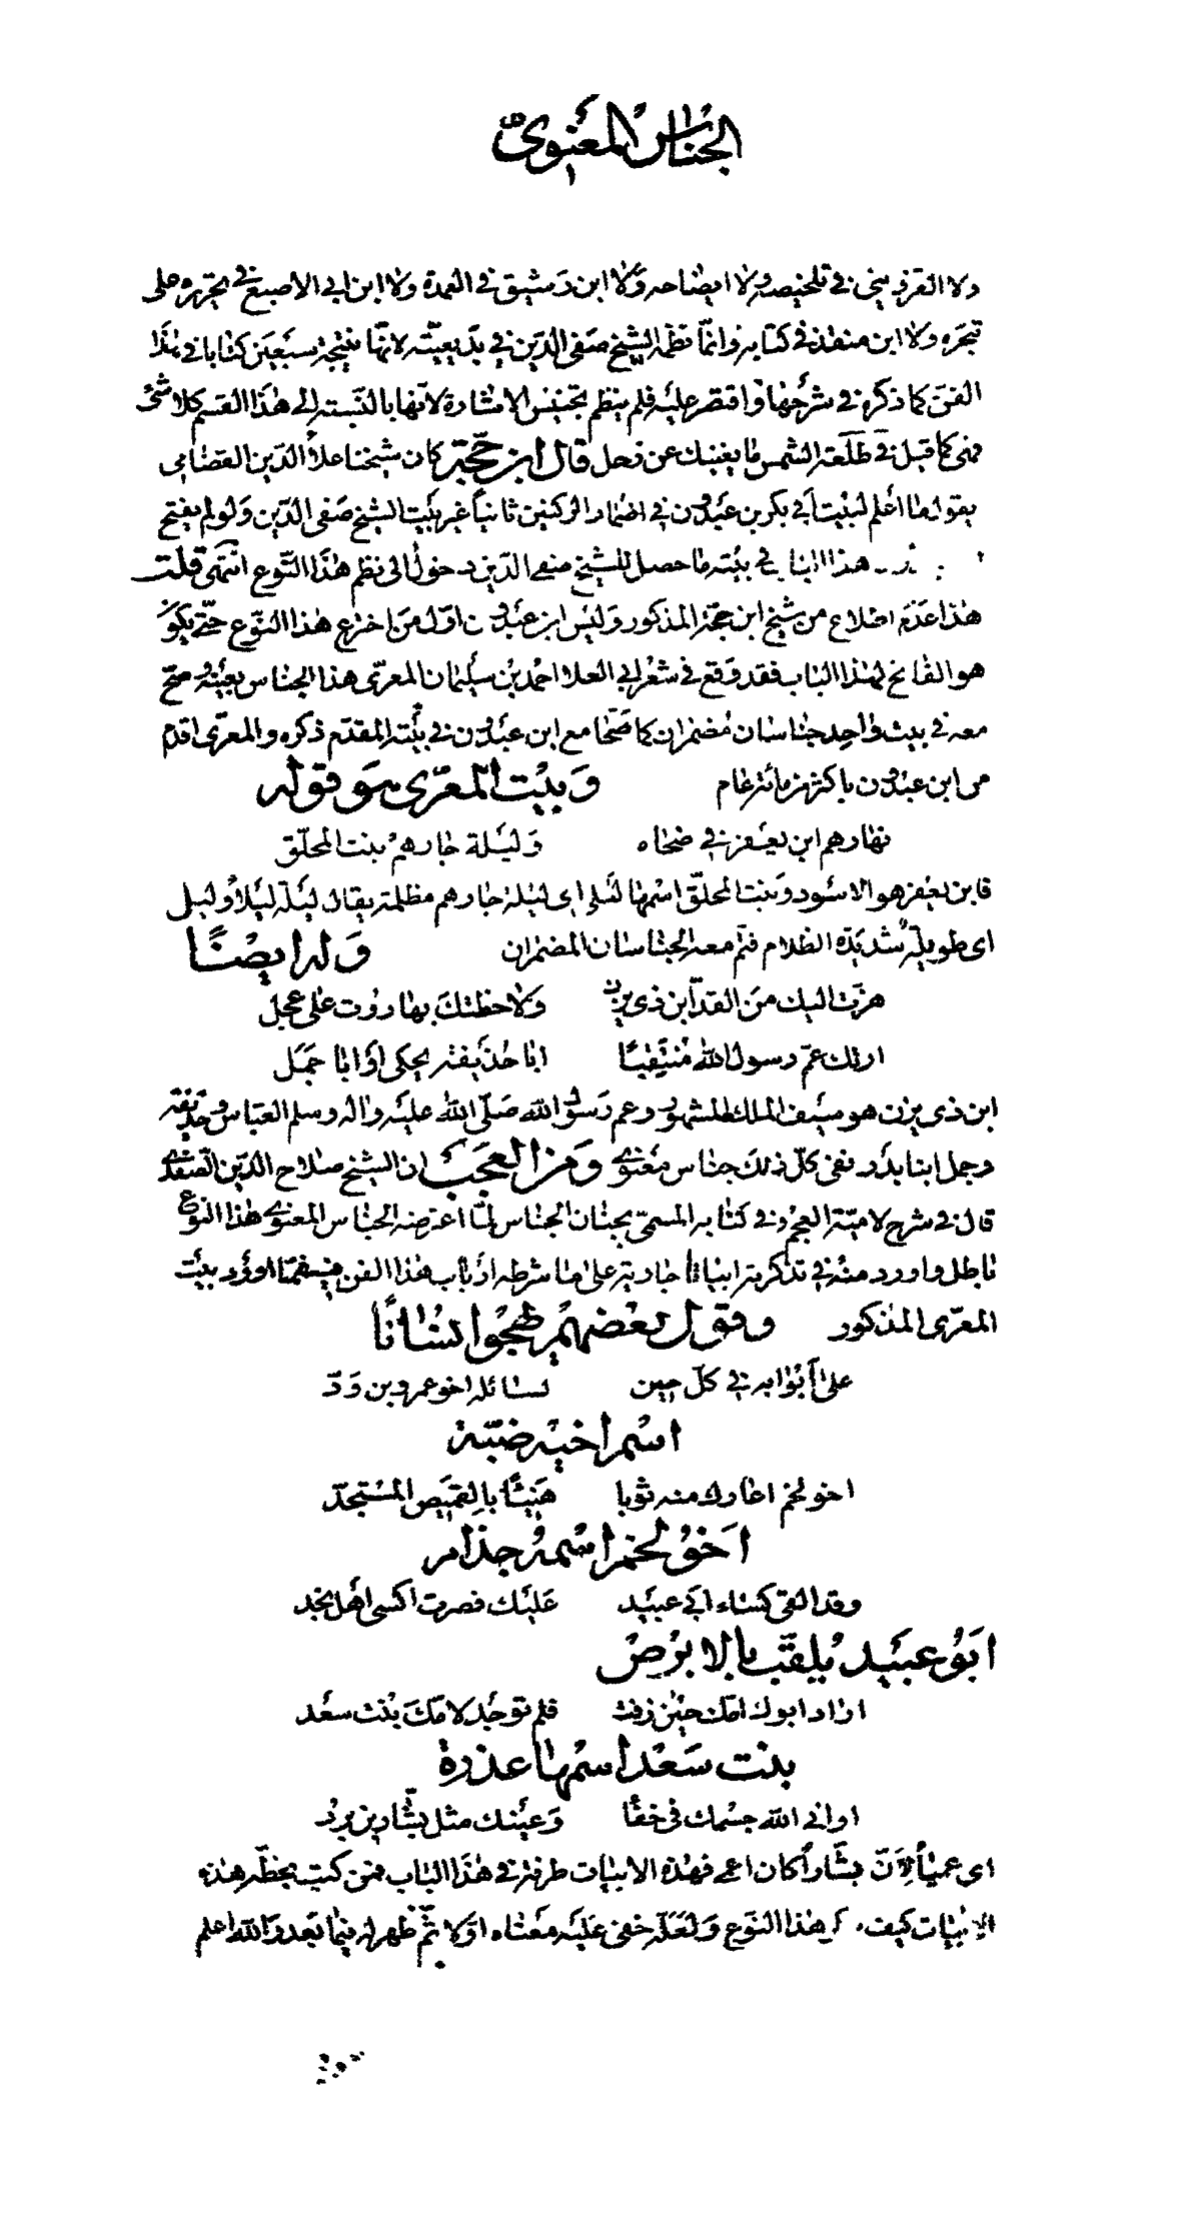 الجناس المعنوىّ
ولا القزوينى فى تلخيصه ولا ايضاحه ولا ابن رشيق فى العمدة ولا ابن ابى الاصبع فى تحريره على
تبحره ولا ابن منقذ فى كتابه وانمّا نظمه الشيخ صفى الدّين فى بديعيّته لانهّا نتيجة سبعين كتابا فى هذا
الفنّ كما ذكره فى شرحها واقتصر عليه فلم ينظم تجنيس الاشارة لانها بالنّسبة الى هذا القسم كلا شئ
فهى كما قيل فى طلعة الشمس ما يغنيك عن زحل قال ابن حجّة كان شيخنا علاء الدّين القضامى
يقول ما اعلم لبيت ابى بكر بن عبدون فى اضمار الركنين ثانياً غير بيت الشيخ صفى الدّين ولو لم يفتح
هذا البا فى بيته ما حصل للشيخ صفى الدّين دخول الى نظم هذا النّوع انتهى قلت
هذا عدم اطلاع من شيخ ابن حجّة المذكور وليس ابن عبدون اوّل من اخترع هذا النّوع حتّى يكون
هو الفاتح لهذا الباب فقد وقع فى شعر ابى العلا احمد بن سليمان المعرّى هذا الجناس بعينه صحّ
معه فى بيت واحد جناسان مضمران كما صحّا مع ابن عبدون فى بيته المقدّم ذكره والمعرّى اقدم
من ابن عبدون باكثر من مائة عام وبيت المعرّى هو قوله
نهارهم ابن يعفر فى ضحاه وليلة جارهم بنت المحلّق
فابن يعفر هو الاسود وبنت المحلّق اسمها ليلى اى ليلة جارهم مظلمة يقال ليلة ليلاء وليل
اى طويلة شديدة الظلام فتم معه الجناسان المضمران وله ايضًا
هزّت اليك من القدّ ابن ذى يزن ولاحظتك بهاروت على عجل
ارتك عمّ رسول الله منتقبًا ابا حذيفة يحكى او ابا حمل
ابن ذى يزن هو سيف الملك المشهور وعم رسول الله صلّى الله عليه واله وسلم العباس وحذيفة
وحمل ابنا بدر ففى كلّ ذلك جناس معنوى ومن العجب ان الشيخ صلاح الدّين الصّفدى
قال فى شرح لاميّة العجم وفى كتابه المسمّى بجنان الجناس لمّا اعترضه الجناس المعنوى هذا النوع
باطل واورد منه فى تذكرته ابياتا جارية على ما شرطه ارباب هذا الفن فيه فممّا اورد بيت
المعرّى المذكور وقول بعضهم يهجوا انسانًا
على ابوابه فى كلّ حين لسائله اخو عمرو بن ودّ
اسم اخيه ضبّة
اخو لخم اعارك منه ثوبا هنيئًا بالقميص المستجدّ
اخو لخم اسمه جذام
وقد القى كساء ابى عبيد عليك فصرت اكسى اهل نجد
ابو عبيد يلقّب بالابرص
اراد ابوك امّك حين زفت فلم توجد لامّك بنت سعد
بنت سعد اسمها عذرة
ارانى الله جسمك فى خفًا وعينك مثل بشّار بن برد
اى عمياء لانّ بشّاراً كان اعمى فهذه الابيات طرفة فى هذا الباب فمن كتب بخطّه هذه
الابيات كيف هذا النوع ولعلّه خفى عليه معناه اوّلا ثمّ ظهر له فيما بعد والله اعلم